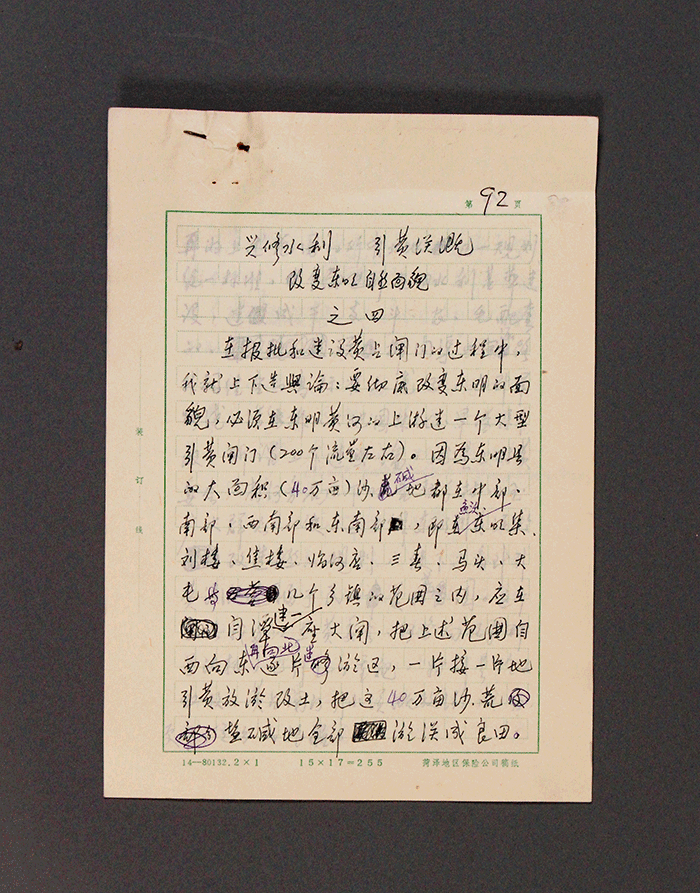 第 92 页
兴修水利 引黄淤灌
改变东明自然面貌
之四
在报批和建设黄占闸门的过程中,
我就上下造舆论:要彻底改变东明的面
貌,必须在东明黄河的上游建一个大型
引黄闸门(200个流量左右)。因为东明县
的大面积(40万亩)沙荒碱地都在中部、
南部、西南部和东南部,即东明集、
刘楼、焦楼、临河店、三春、马头、大
屯 几个乡镇的范围之内,应在
闫潭建一座大闸,把上述范围自
西向东再向北逐片淤这,一片接一片地
引黄放淤改土,把这40万亩沙荒
盐碱地全部淤淤成良田。
装订线
14—80132.2×1 15×17=255 菏泽地区保险公司稿纸